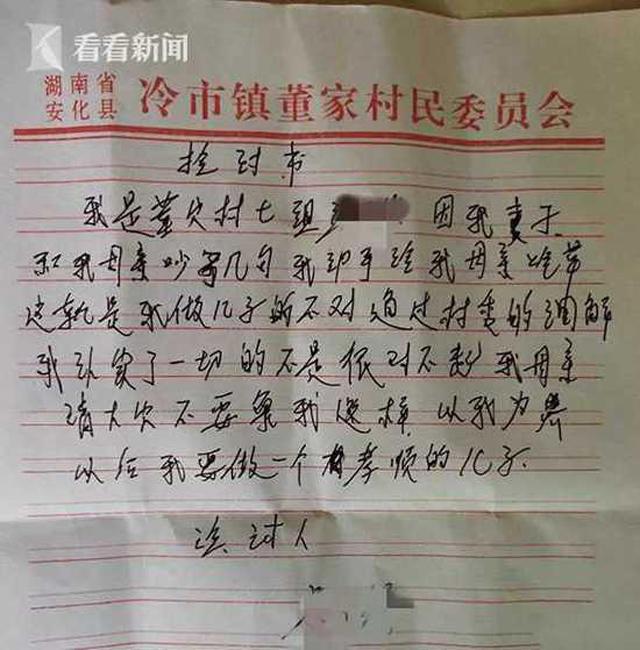 看看新闻
湖南省
安化县
冷市镇董家村民委员会
检讨书
我是董家村七组 因我妻子
和我母亲吵了几句 我动手给我母亲
这就是我做儿子的不对 通过村委的调解
我认识了一切的不是 很对不起我母亲
请大家不要像我这样 以我为
以后我要做一个有孝顺的儿子.
检讨人